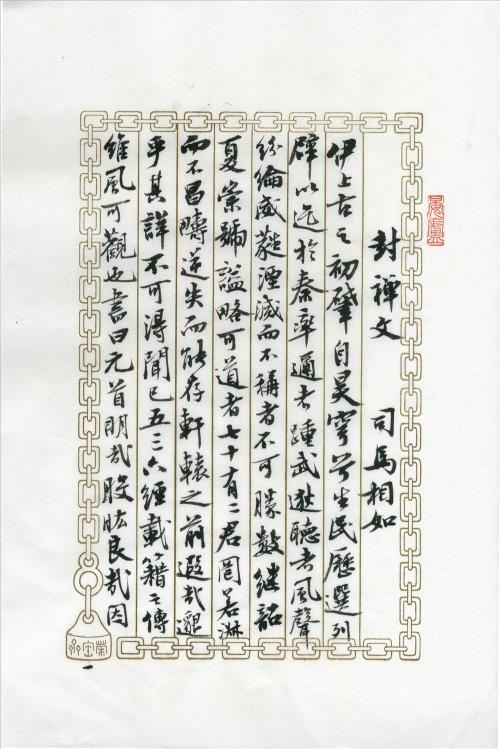 封禪文 司馬相如
伊上古之初肇自昊穹兮生民歷選列
辟以迄於秦率邇者踵武逖聽者風聲
紛綸葳蕤湮滅而不稱者不可勝數继韶
夏崇號謚略可道者七十有二君罔若淑
而不昌疇逆失而能存軒轅之前遐哉邈
乎其詳不可得聞已五三六經載籍之傳
維風可觀也書曰元首明哉股肱良哉因